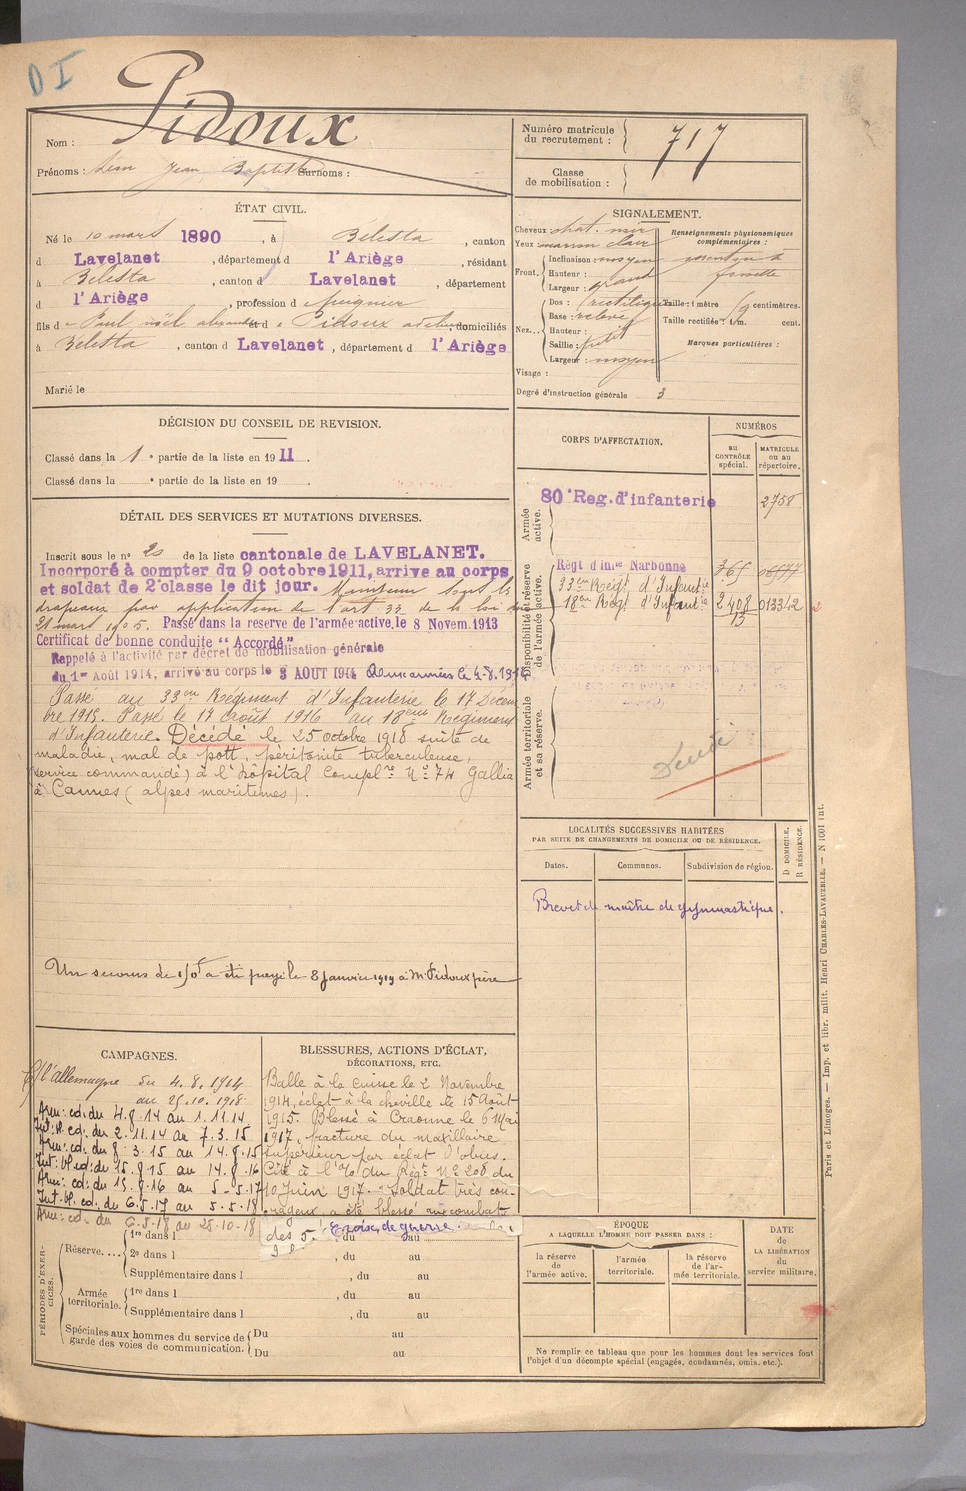 D I
Pidoux
Nom :
Prénoms : Léon Jean Baptiste Surnoms :
Numéro matricule
du recrutement :
717
Classe
de mobilisation :
ÉTAT CIVIL.
Né le 10 mars 1890, à Bélesta, canton
d Lavelanet, département d l'Ariège, résidant
à Bélesta, canton d Lavelanet, département
d l'Ariège, profession d
fils d e Paul noël et d e Pidoux, domiciliés
à Bélesta, canton d Lavelanet, département d l'Ariège
Marié le
SIGNALEMENT.
Cheveux chat. noir
Yeux marron clair
Front. Inclinaison : moyen
Hauteur : grand
Largeur :
Nez... Dos : rectiligne
Base : relevé
Hauteur :
Saillie : petit
Largeur : moyen
Visage :
Renseignements physionomiques
complémentaires :
Taille : 1 mètre centimètres.
Taille rectifiée : 1m. cent.
Marques particulières :
Degré d'instruction générale 3
DÉCISION DU CONSEIL DE REVISION.
Classé dans la 1e partie de la liste en 1911.
Classé dans la e partie de la liste en 19 .
DÉTAIL DES SERVICES ET MUTATIONS DIVERSES.
Inscrit sous le n° 20 de la liste cantonale de LAVELANET.
Incorporé à compter du 9 octobre 1911, arrive au corps
et soldat de 2e classe le dit jour. Maintenu sous les
drapeaux par application de l'art 33 de la loi du
21 mars 1905. Passé dans la reserve de l'armée active, le 8 Novem. 1913
Certificat de bonne conduite "Accordé"
Rappelé à l'activité par décret de mobilisation générale
du 1er Août 1914, arrivé au corps le 3 AOUT 1914 Aux armées le 4-8-1914
Passé au 33eme Régiment d'Infanterie le 17 Décem
bre 1915. Passé le 17 août 1916 au 18eme Régiment
d'Infanterie. Décédé le 25 octobre 1918 suite de
maladie, mal de pott, péritonite tuberculeuse,
(service commandé) à l'hôpital Complre N° 74 Gallia
à Cannes (alpes maritimes).
Un secours de 150f a été payé le 8 janvier 1919 à Mr Pidoux père
CORPS D'AFFECTATION.
NUMÉROS
au
CONTRÔLE
spécial.
MATRICULE
ou au
répertoire.
Armée
active.
80e Reg. d'infanterie 2758
Disponibilité et réserve
de l'armée active.
Régt d'infie Narbonne 365
33eme Régt d'Infantie
18eme Régt d'Infantie 2408 013342
13
Armée territoriale
et sa réserve.
Décédé
LOCALITÉS SUCCESSIVES HABITÉES
PAR SUITE DE CHANGEMENTS DE DOMICILE OU DE RÉSIDENCE.
Dates. Communes. Subdivision de région.
D DOMICILE,
R RÉSIDENCE.
Brevet de maître de gymnastique.
CAMPAGNES.
C/ l'allemagne du 4.8.1914
au 25.10.1918
Arm: ed. du 4.8.14 au 1.11.14
Int: bl. ed. du 2.11.14 au 7.3.15
Arm: ed. du 8.3.15 au 14.8.15
Int: bl. ed. du 15.8.15 au 14.8.16
Arm: ed. du 15.8.16 au 5-5-17
Int. bl. ed. du 6.5.17 au 5.5.18
Arm: ed. du 6.5.18 au 25.10.18
BLESSURES, ACTIONS D'ÉCLAT,
DÉCORATIONS, ETC.
Balle à la cuisse le 2 Novembre
1914, éclat à la cheville le 15 Août
1915. Blessé à Craonne le 6 Mai
1917, fracture du maxillaire
supérieur par éclat d'obus.
Cité à l'% du Régt N° 208 du
10 Juin 1917. "Soldat très cou-
rageux, a été blessé aux combats
des 5. Croix de guerre.
PÉRIODES D'EXER-
CICES.
Réserve....
1re dans l , du au
2e dans l , du au
Supplémentaire dans l , du au
Armée
territoriale.
1re dans l , du au
Supplémentaire dans l , du au
Spéciales aux hommes du service de
garde des voies de communication.
Du au
Du au
ÉPOQUE
A LAQUELLE L'HOMME DOIT PASSER DANS :
la réserve
de
l'armée active.
l'armée
territoriale.
la réserve
de l'ar-
mée territoriale.
DATE
de
LA LIBÉRATION
du
service militaire.
Ne remplir ce tableau que pour les hommes dont les services font
l'objet d'un décompte spécial (engagés, condamnés, omis, etc.).
Paris et Limoges. — Imp. et libr. milit. Henri CHARLES-LAVAUZELLE. — N 1001 int.